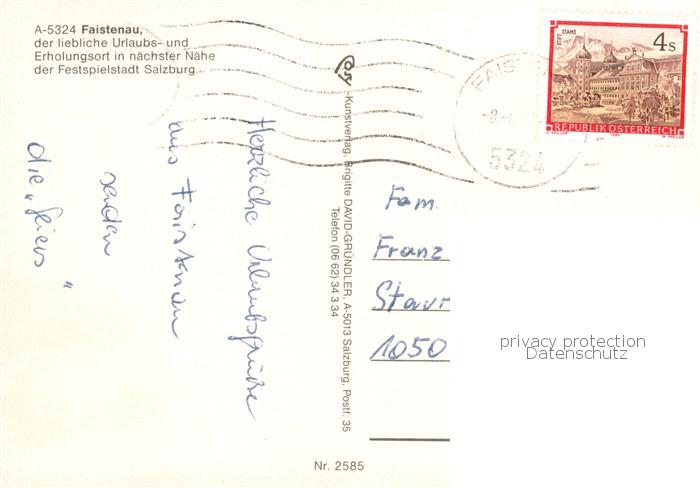 A-5324 Faistenau,
der liebliche Urlaubs- und
Erholungsort in nächster Nähe
der Festspielstadt Salzburg
Herzliche Urlaubsgrüße
aus Faistenau
senden
die "
Cosy -Kunstverlag, Brigitte DAVID-GRÜNDLER, A-5013 Salzburg, Postf. 35
Telefon (06 62) 34 3 34
4 S
STIFT STAMS
REPUBLIK ÖSTERREICH
5324
Fam.
Franz
1050
privacy protection
Datenschutz
Nr. 2585